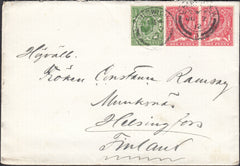 Högvälb.
Fröken Constance Ramsay
Munksnäs
Helsingfors
Finland